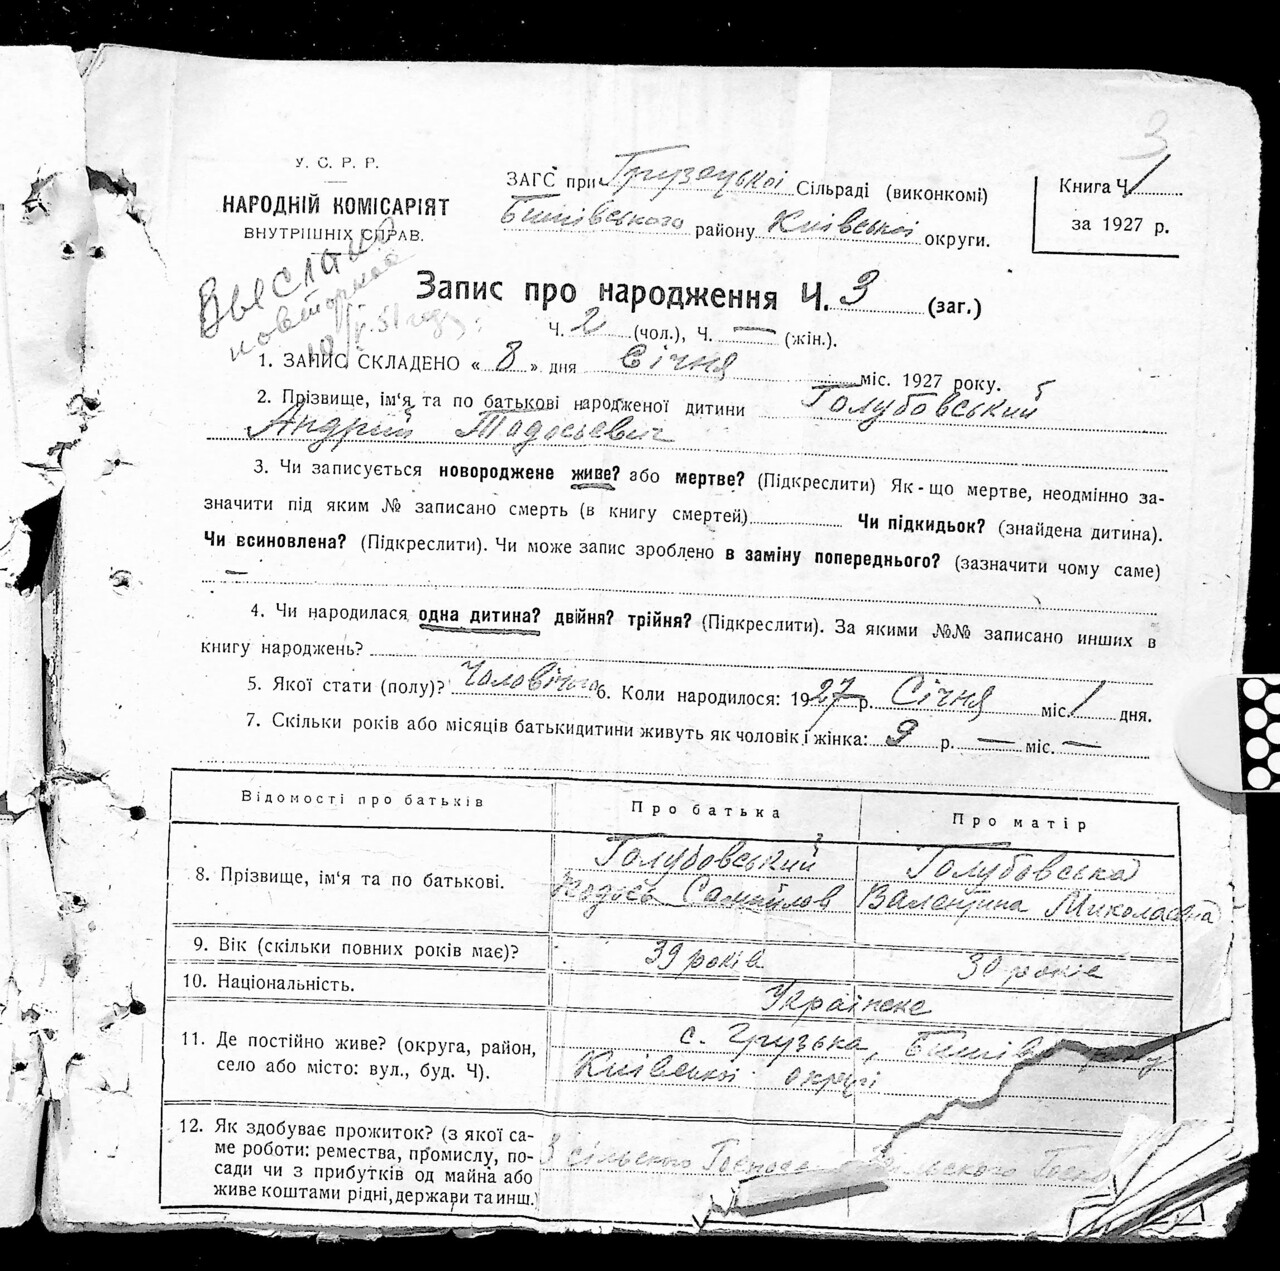 3
У. С. Р. Р.
НАРОДНІЙ КОМІСАРІЯТ
ВНУТРІШНІХ СПРАВ.
ЗАГС при Грузецької Сільраді (виконкомі)
району Київської округи.
Книга Ч. 1
за 1927 р.
Выслано
повторное
Запис про народження Ч. 3 (заг.)
Ч. 2 (чол.), Ч. — (жін.).
1. ЗАПИС СКЛАДЕНО « 8 » дня Січня міс. 1927 року.
2. Прізвище, ім‘я та по батькові народженої дитини Голубовський
Андрий Тодосьевич
3. Чи записується новороджене живе? або мертве? (Підкреслити) Як-що мертве, неодмінно за-
значити під яким № записано смерть (в книгу смертей) Чи підкидьок? (знайдена дитина).
Чи всиновлена? (Підкреслити). Чи може запис зроблено в заміну попереднього? (зазначити чому саме)
—
4. Чи народилася одна дитина? двійня? трійня? (Підкреслити). За якими №№ записано инших в
книгу народжень?
5. Якої стати (полу)? Чоловічого 6. Коли народилося: 1927 р. Січня міс. 1 дня.
7. Скільки років або місяців батькидитини живуть як чоловік і жінка: 9 р. — міс. —
Відомості про батьків Про батька Про матір
8. Прізвище, ім‘я та по батькові.
Голубовський Голубовська
Тодось Самойлов Валентина Миколаевна
9. Вік (скільки повних років має)? 39 років 30 років
10. Національність. Українське
11. Де постійно живе? (округа, район,
село або місто: вул., буд. Ч).
с. Грузька,
Київської округі
12. Як здобуває прожиток? (з якої са-
ме роботи: ремества, промислу, по-
сади чи з прибутків од майна або
живе коштами рідні, держави та инш.)
З сільського